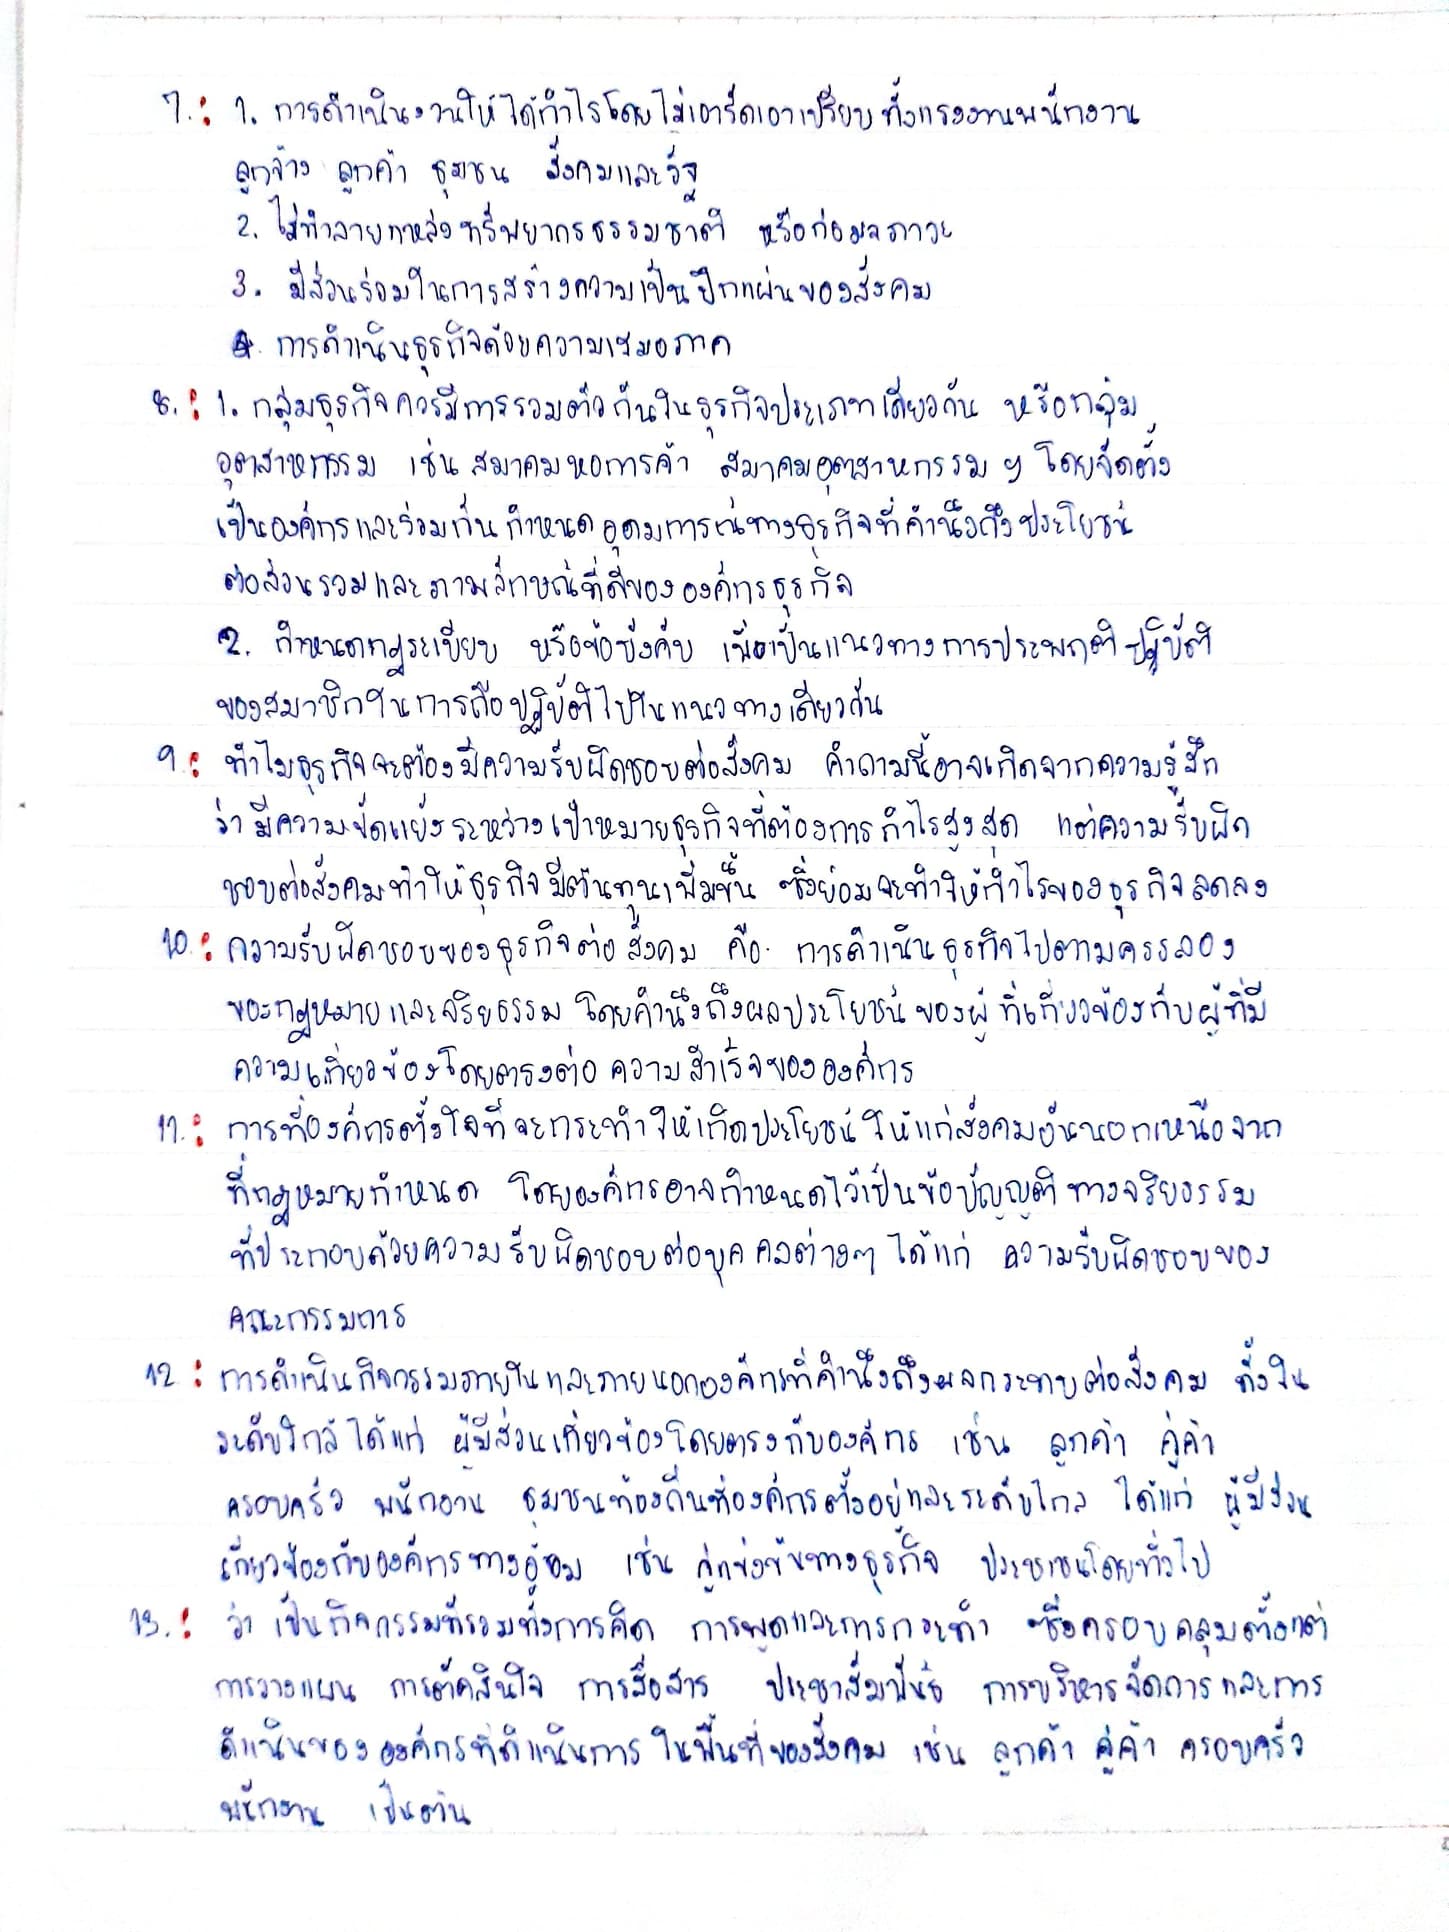 7. : 1. การดำเนินงานให้ได้กำไรโดยไม่เอารัดเอาเปรียบทั้งแรงงานพนักงาน
ลูกจ้าง ลูกค้า ชุมชน สังคมและรัฐ
2. ไม่ทำลายแหล่งทรัพยากรธรรมชาติ หรือก่อมลภาวะ
3. มีส่วนร่วมในการสร้างความเป็นปึกแผ่นของสังคม
4. การดำเนินธุรกิจด้วยความเสมอภาค
8. : 1. กลุ่มธุรกิจควรมีการรวมตัวกันในธุรกิจประเภทเดียวกัน หรือกลุ่ม
อุตสาหกรรม เช่น สมาคมหอการค้า สมาคมอุตสาหกรรม ฯ โดยจัดตั้ง
เป็นองค์กรและร่วมกันกำหนดอุดมการณ์ทางธุรกิจที่คำนึงถึงประโยชน์
ต่อส่วนรวมและภาพลักษณ์ที่ดีขององค์กรธุรกิจ
2. กำหนดกฎระเบียบ หรือข้อบังคับ เพื่อเป็นแนวทางการประพฤติปฏิบัติ
ของสมาชิกในการถือปฏิบัติไปในแนวทางเดียวกัน
9. : ทำไมธุรกิจจะต้องมีความรับผิดชอบต่อสังคม คำถามนี้อาจเกิดจากความรู้สึก
ว่ามีความขัดแย้งระหว่างเป้าหมายธุรกิจที่ต้องการกำไรสูงสุด แต่ความรับผิด
ชอบต่อสังคมทำให้ธุรกิจมีต้นทุนเพิ่มขึ้น ซึ่งย่อมจะทำให้กำไรของธุรกิจลดลง
10. : ความรับผิดชอบของธุรกิจต่อสังคม คือ การดำเนินธุรกิจไปตามครรลอง
ของกฎหมายและจริยธรรม โดยคำนึงถึงผลประโยชน์ของผู้ที่เกี่ยวข้องกับผู้ที่มี
ความเกี่ยวข้องโดยตรงต่อความสำเร็จขององค์กร
11. : การที่องค์กรตั้งใจที่จะกระทำให้เกิดประโยชน์ให้แก่สังคมอันนอกเหนือจาก
ที่กฎหมายกำหนด โดยองค์กรอาจกำหนดไว้เป็นข้อบัญญัติทางจริยธรรม
ที่ประกอบด้วยความรับผิดชอบต่อบุคคลต่างๆ ได้แก่ ความรับผิดชอบของ
คณะกรรมการ
12 : การดำเนินกิจกรรมภายในและภายนอกองค์กรที่คำนึงถึงผลกระทบต่อสังคม ทั้งใน
ระดับใกล้ ได้แก่ ผู้มีส่วนเกี่ยวข้องโดยตรงกับองค์กร เช่น ลูกค้า คู่ค้า
ครอบครัว พนักงาน ชุมชนท้องถิ่นที่องค์กรตั้งอยู่และระดับไกล ได้แก่ ผู้มีส่วน
เกี่ยวข้องกับองค์กรทางอ้อม เช่น คู่แข่งขันทางธุรกิจ ประชาชนโดยทั่วไป
13. : ว่า เป็นกิจกรรมที่รวมทั้งการคิด การพูดและการกระทำ ซึ่งครอบคลุมตั้งแต่
การวางแผน การตัดสินใจ การสื่อสาร ประชาสัมพันธ์ การบริหารจัดการและการ
ดำเนินขององค์กรที่ดำเนินการในพื้นที่ของสังคม เช่น ลูกค้า คู่ค้า ครอบครัว
พนักงาน เป็นต้น